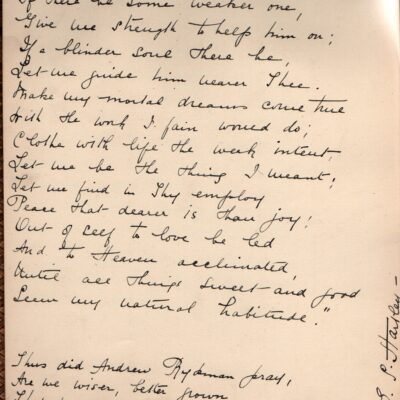 If there be some weaker one,
Give me strength to help him on;
If a blinder soul there be,
Let me guide him nearer Thee.
Make my mortal dreams come true
With the work I fain would do;
Clothe with life the weak intent,
Let me be the thing I meant;
Let me find in Thy employ
Peace that dearer is than joy;
Out of self to love be led
And to Heaven acclimated,
Until all things sweet and good
Seem my natural habitude."
Thus did Andrew Rykman pray,
Are we wiser, better grown